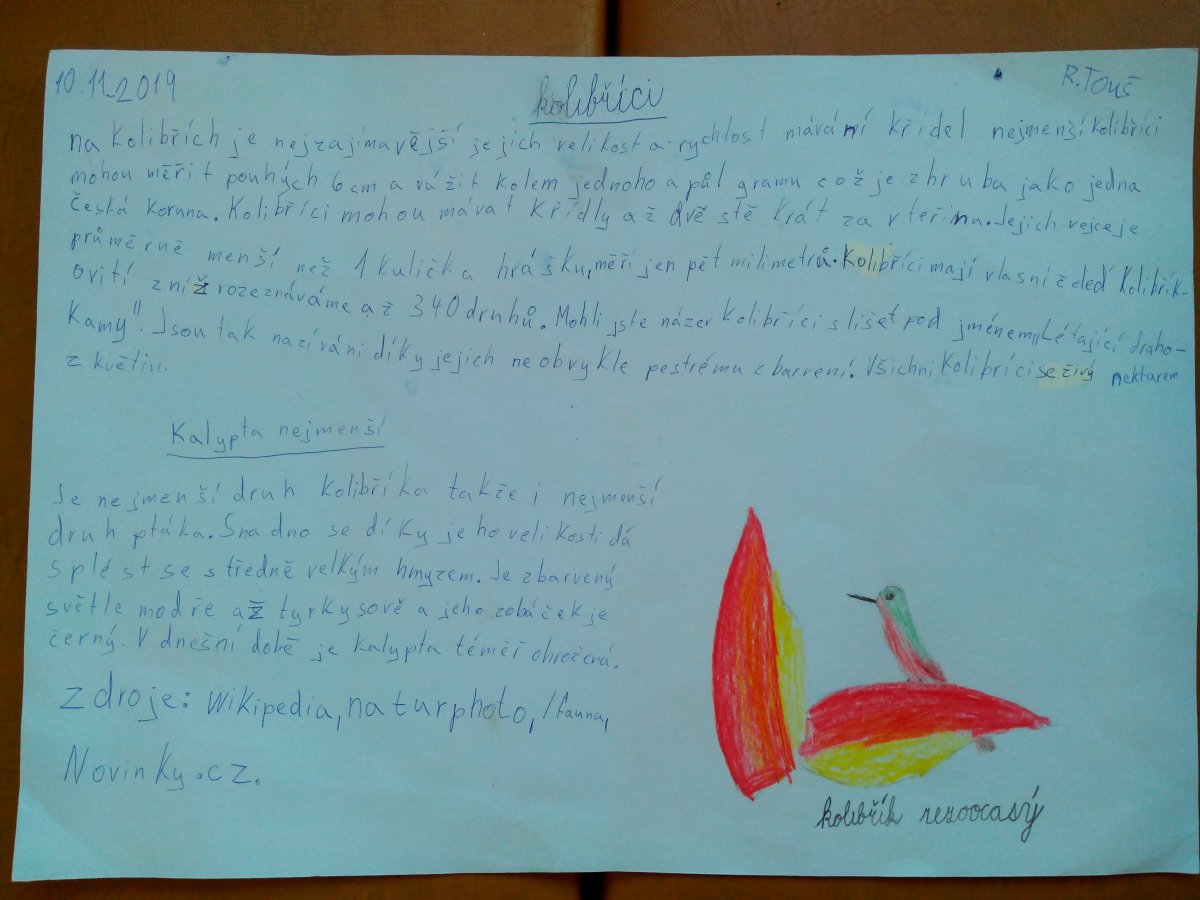 10.11.2019
kolibříci
R.Touš
na kolibřích je nejzajímavější jejich velikost a rychlost mávání křídel nejmenší kolibříci
mohou měřit pouhých 6cm a vážit kolem jednoho a půl gramu což je zhruba jako jedna
Česká koruna. Kolibříci mohou mávat křídly až dvě stě krát za vteřinu. Jejich vejce je
průměrně menší než 1 kulička hrášku, měří jen pět milimetrů. Kolibříci mají vlasní čeleď Kolibřík-
ovití z níž rozeznáváme až 340 druhů. Mohli jste název kolibříci slišet pod jménem „Létající draho-
kamy". Jsou tak nazíváni díky jejich neobvykle pestrému zbarvení. Všichni kolibříci se živý nektarem
z květin.
Kalypta nejmenší
Je nejmenší druh kolibříka takže i nejmenší
druh ptáka. Snadno se díky jeho velikosti dá
splést se středně velkým hmyzem. Je zbarvený
světle modře až tyrkysově a jeho zobáček je
černý. V dnešní době je kalypta téměř ohrožená.
Zdroje: Wikipedia, naturphoto, /fauna,
Novinky.cz.
kolibřík rezoocasý